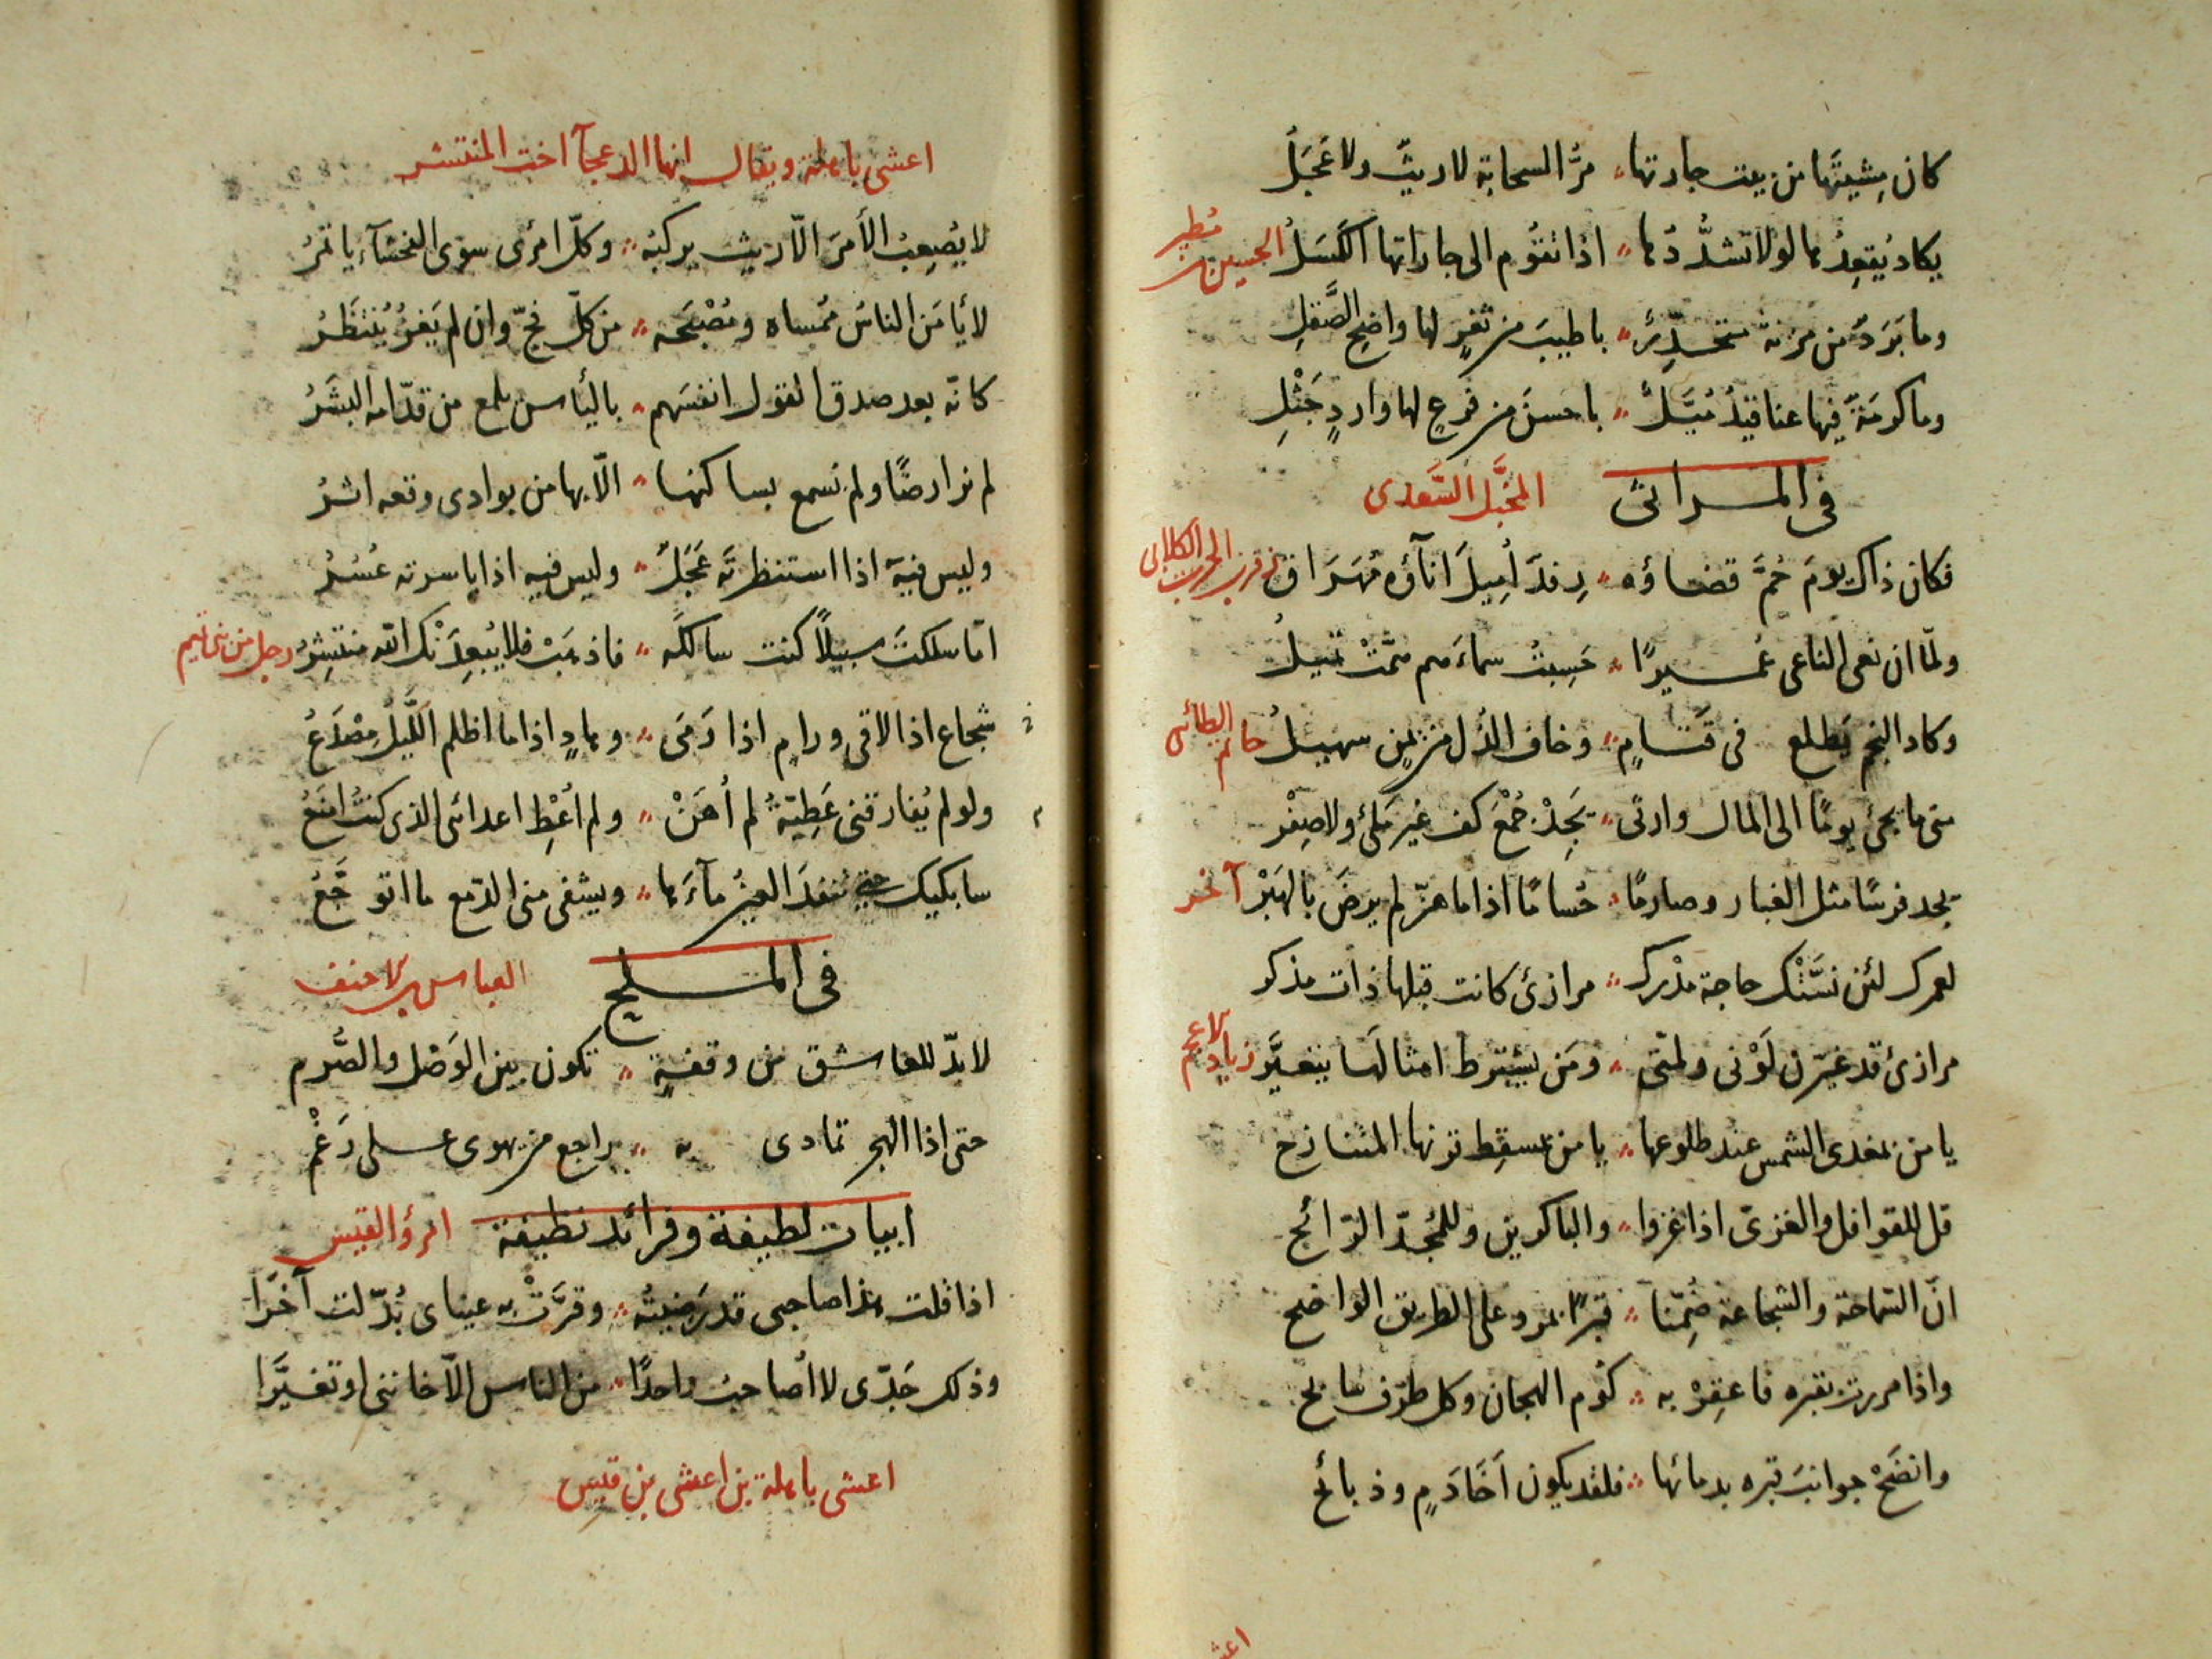 كان مِشيتَها من بيت جارتها مرُّ السحابة لا ريثٌ ولا عَجَلُ
يكاد يُقعِدُها لولا تشدُّدُها اذا تقُوم الى جاراتها الكَسَلُ الحسين بن مُطير
وما بَرَدٌ من مزنة باطيبَ من ثغرٍ لها واضح الصَّقلِ
وما كرمَةٌ فيها عناقيدُ باحسنَ من فرعٍ لها واردٍ جَثْلِ
فى المراثى المخبَّل السَّعدى
فكان ذاك يومَ حُمَّ قضاؤه رِفدٌ أُمِيلَ اناؤه مُهَرَاق الكلابى
ولمّا ان نعى الناعى عُميرًا حَسِبتُ سماءَهم تميلُ
وكاد النجم يَطلع فى قَتَامٍ وخاف الذُل من يَمَنٍ سهيلُ حاتم الطائى
متى ما يجئ يومًا الى المال وارثى يَجِدْ جُمْعَ كف غير مَلئ ولا صِفْر
يجد فرسًا مثل القنا وصارمًا حُسامًا اذا ما هزّ لم يرضَ بالهَبْر آخر
لعمرك لئن حاجة مرازئ كانت قبلها ذات مذكر
مرازئ قد غيّرن لَوْنى ولمّتى ومَن يشترط امثالَها يتغيَّر زياد الاعجم
يا من بمغدى الشمس عند طلوعها يا من بمسقِط قرنها المتنازح
قل للقوافل والغزىّ اذا غزوا والباكرين وللمُجدّ الرّائح
انّ السّماحة والشجاعة ضُمِّنا قبرًا بمرو على الطريق الواضح
واذا مررت بقبره فاعقِرْ به كُوم الهجان وكل طِرْف سابح
وانضَحْ جوانبَ قبره بدمائها فلقد يكون اَخَا دَمٍ وذبائح
اعشى باهلة ويقال انها الدعجآ اخت المنتشر
لا يُصعِبُ الأمرَ الّا ريث يركبُه وكلّ امرئ سوى الفحشآء ياتمرُ
لا يأمَن الناسُ مُمساه ومُصْبَحَه من كلّ فجّ وان لم يَغزُ يُنتَظَرُ
كانّه بعد صدق القول انفسَهم باليأس يلمع من قدّامه البُشَرُ
لم نر ارضًا ولم نسمع بساكنها الّا بها من بوادى وقعه اثرُ
وليس فيه اذا استنظرتَه عَجَلٌ وليس فيه اذا ياسرته عُسُرُ
امّا سلكتَ سبيلًا كنت سالكَه فاذهَبْ فلا يُبعِدَنْك الله منتشِرُ رجل من بنى تميم
شجاع اذا لاقى ورامٍ اذا رَمَى وهادٍ اذا ما اظلم اللَّيلُ مِصْدَعُ
ولو لم يُفارقنى عَطِيّةُ لم أهَنْ ولم أعْطِ اعدائى الذى كنتُ امنَعُ
سابكيك حتى تنفدَ العينُ مآءَها ويشفى منى الدّمع ما اتوجَّعُ
فى الملح العباس بن الاحنف
لا بدّ للعاشق من وقفةٍ تكون بين الوَصْل والصَّرم
حتى اذا الهجر تمادى به راجع من يهوى على رَغْم
ابيات لطيفة وفرائد نظيفة امرؤ القيس
اذا قلت هذا صاحبى قد رَضِيتُه وقرَّتْ به عيناى بُدّلت آخَرَا
وذلك جَدّى لا أصاحب واحدًا من الناس الّا خاننى او تغيَّرَا
اعشى باهلة بن اعشى بن قيس